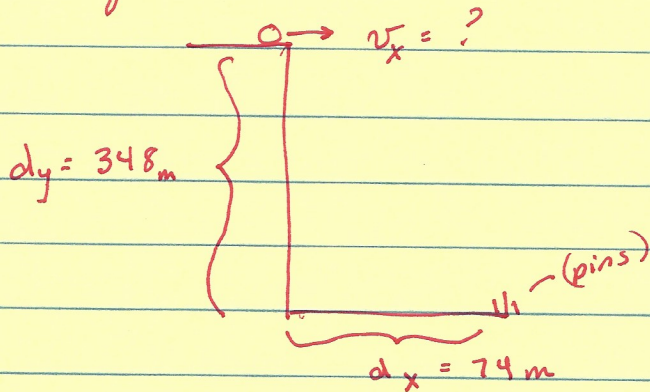 v_x = ?
d_y = 348 m
(pins)
d_x = 74 m